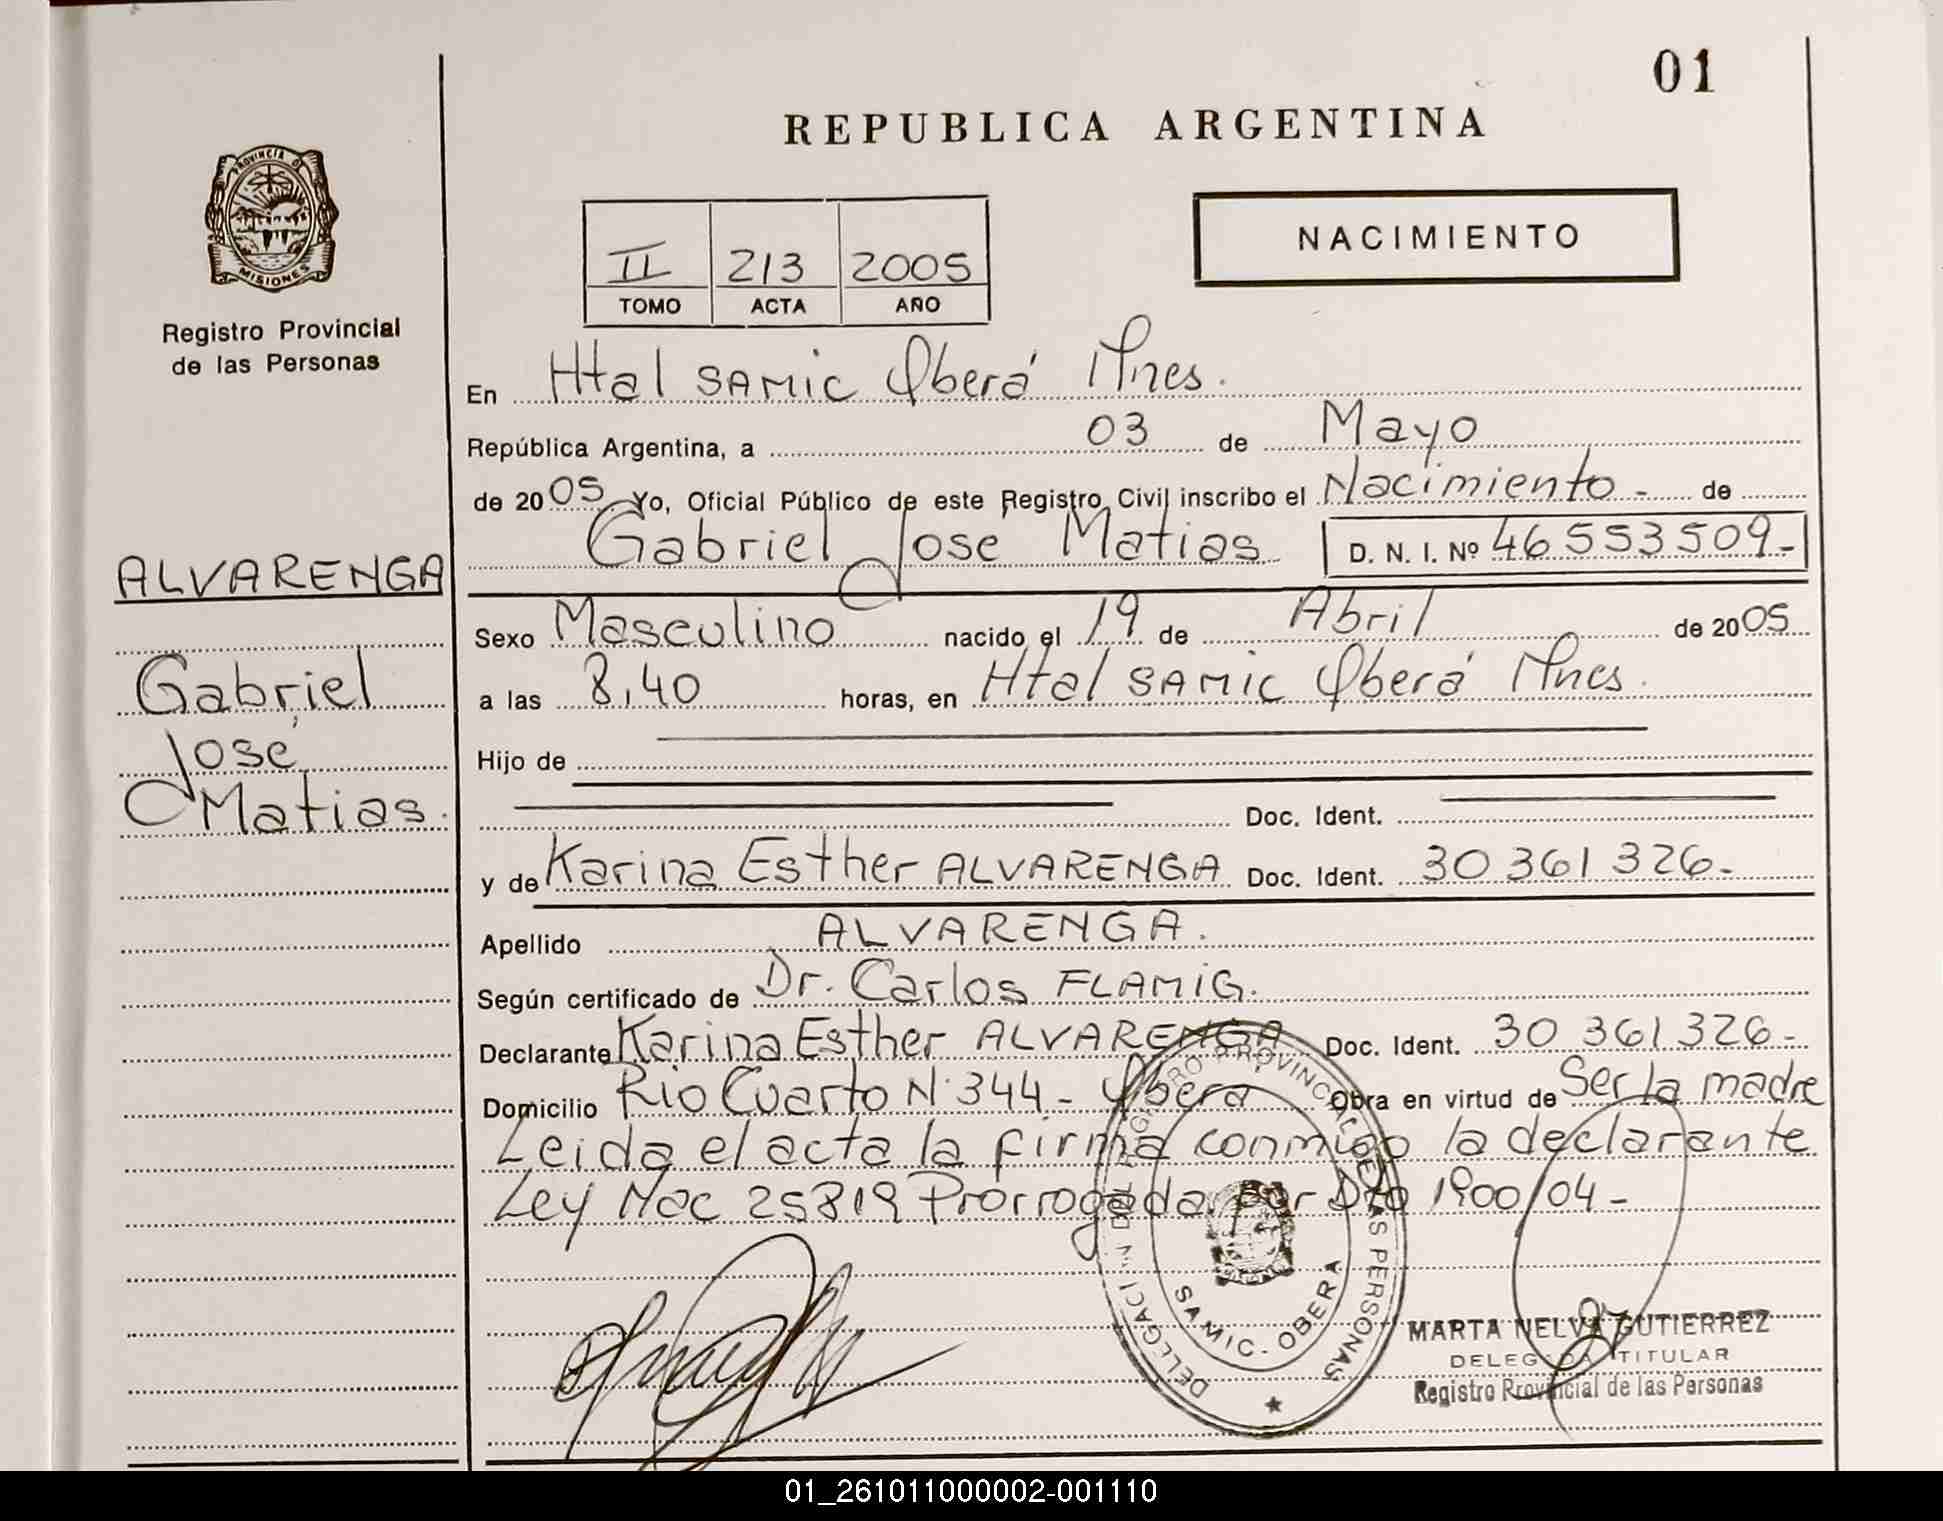 01
REPUBLICA ARGENTINA
PROVINCIA DE
MISIONES
Registro Provincial
de las Personas
II 213 2005
TOMO ACTA AÑO
NACIMIENTO
En Htal SAMIC Oberá Mnes.
República Argentina, a 03 de Mayo
de 2005 Yo, Oficial Público de este Registro Civil inscribo el Nacimiento - de
Gabriel José Matias D. N. I. Nº 46 553 509-
ALVARENGA
Gabriel
José
Matias.
Sexo Masculino nacido el 19 de Abril de 2005
a las 8,40 horas, en Htal SAMIC Oberá Mnes.
Hijo de
Doc. Ident.
y de Karina Esther ALVARENGA Doc. Ident. 30 361 326-
Apellido ALVARENGA.
Según certificado de Dr. Carlos FLAMIG.
Declarante Karina Esther ALVARENGA Doc. Ident. 30 361 326-
Domicilio Rio Cuarto N° 344 - Oberá Obra en virtud de Ser la madre
Leida el acta la firma conmigo la declarante
Ley Nac 25819 Prorrogada por Dto 1900/04-
REGISTRO PROVINCIAL DE LAS PERSONAS
SAMIC. OBERA
MARTA NELVA GUTIERREZ
DELEGADA TITULAR
Registro Provincial de las Personas
01_261011000002-001110